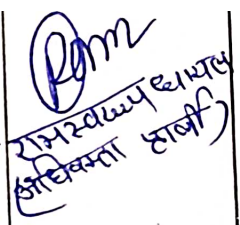 Ram
रामस्वरूप धायल
अधिवक्ता प्रार्थी